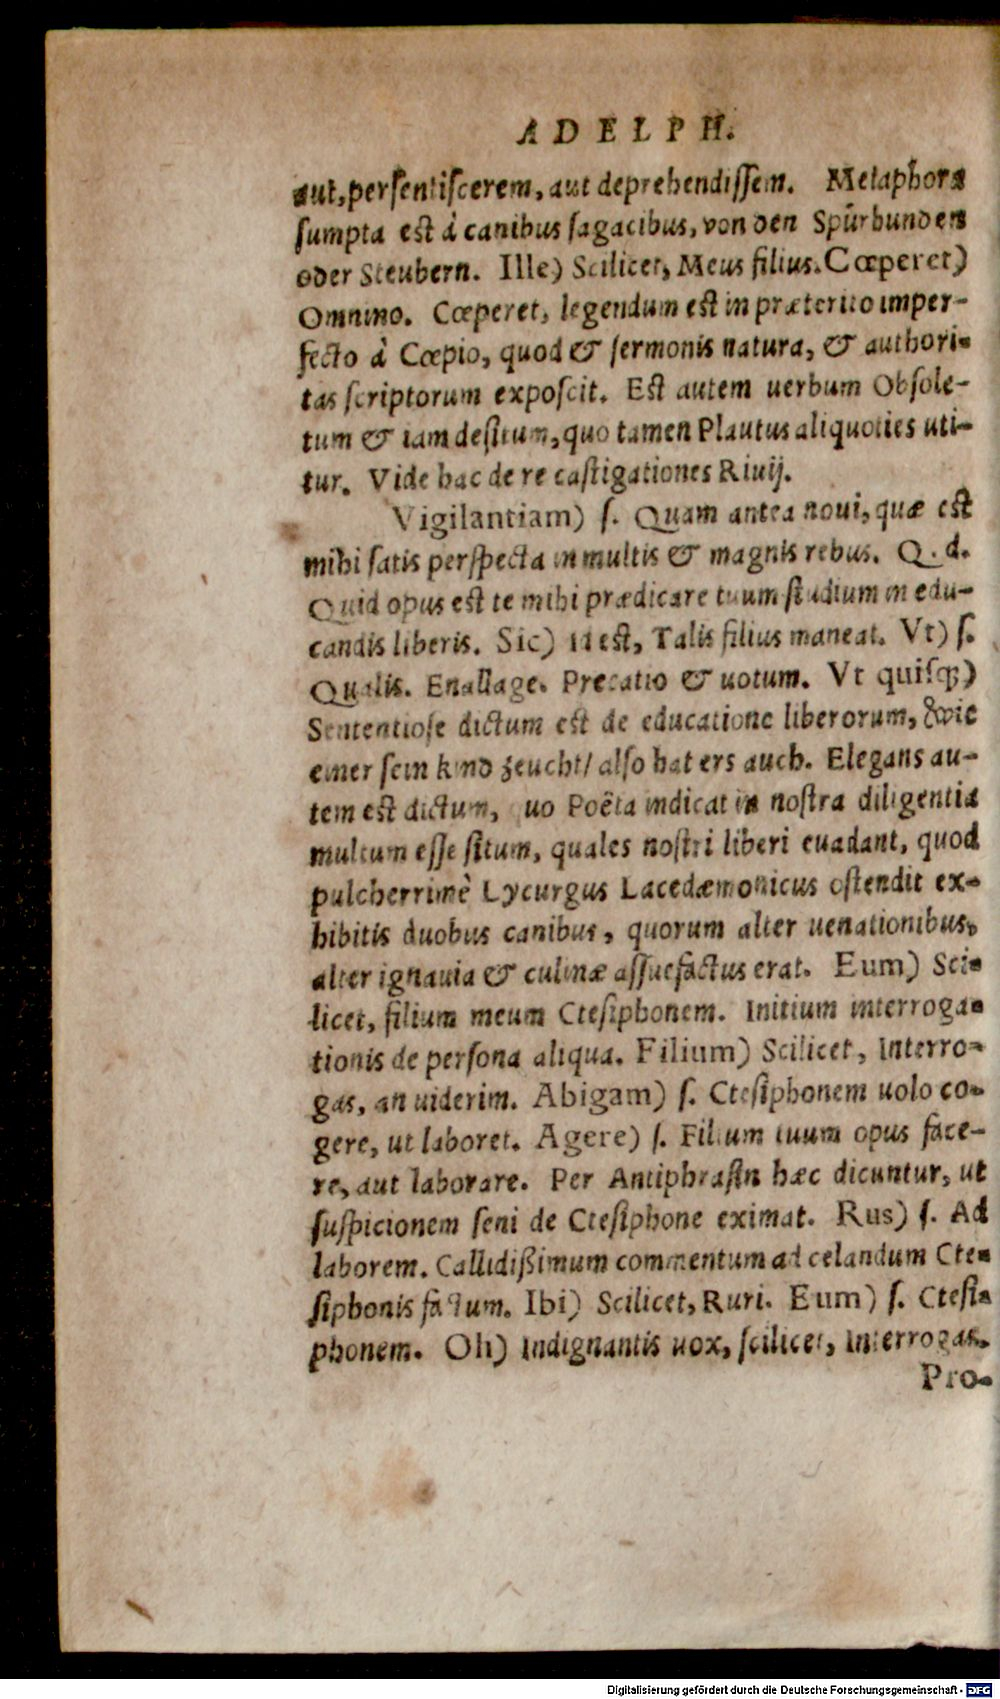 ADELPH.
aut, persentiscerem, aut deprehendissem. Metaphora
sumpta est à canibus sagacibus, von den Spürhunden
oder Steubern. Ille) Scilicet, Meus filius. Cœperet)
Omnino. Cœperet, legendum est in præterito imper-
fecto à Cœpio, quod & sermonis natura, & authori-
tas scriptorum exposcit. Est autem uerbum Obsole-
tum & iam desitum, quo tamen Plautus aliquoties uti-
tur. Vide hac de re castigationes Riuij.
Vigilantiam) s. Quam antea noui, quæ est
mihi satis perspecta in multis & magnis rebus. Q. d.
Quid opus est te mihi prædicare tuum studium in edu-
candis liberis. Sic) Id est, Talis filius maneat. Vt) s.
Qualis. Enallage. Precatio & uotum. Vt quisq;)
Sententiose dictum est de educatione liberorum, wie
einer sein kind zeucht/ also hat ers auch. Elegans au-
tem est dictum, quo Poëta indicat in nostra diligentia
multum esse situm, quales nostri liberi euadant, quod
pulcherrimè Lycurgus Lacedæmonicus ostendit ex-
hibitis duobus canibus, quorum alter uenationibus,
alter ignauia & culinæ assuefactus erat. Eum) Sci-
licet, filium meum Ctesiphonem. Initium interroga-
tionis de persona aliqua. Filium) Scilicet, Interro-
gas, an uiderim. Abigam) s. Ctesiphonem uolo co-
gere, ut laboret. Agere) s. Filium tuum opus face-
re, aut laborare. Per Antiphrasin hæc dicuntur, ut
suspicionem seni de Ctesiphone eximat. Rus) s. Ad
laborem. Callidißimum commentum ad celandum Cte-
siphonis factum. Ibi) Scilicet, Ruri. Eum) s. Ctesi-
phonem. Oh) Indignantis uox, scilicet, Interrogas.
Pro-
Digitalisierung gefördert durch die Deutsche Forschungsgemeinschaft - DFG